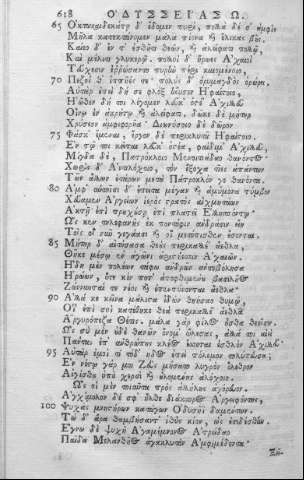 618 ΟΔΥΣΣΕΙΑΣ Ω.
65 Ὀκτωκαιδεκάτῃ δ' ἔδομεν πυρὶ, πολλὰ δέ σ' ἀμφὶς
Μῆλα κατεκτάνομεν μάλα πίονα καὶ ἕλικας βοῦς.
Καίεο δ' ἔν τ' ἐσθῆτι θεῶν, καὶ ἀλείφατι πολλῷ,
Καὶ μέλιτι γλυκερῷ· πολλοὶ δ' ἥρωες Ἀχαιοὶ
Τεύχεσιν ἐρρώσαντο πυρὴν πέρι καιομένοιο,
70 Πεζοί θ' ἱππῆές τε· πολὺς δ' ὀρυμαγδὸς ὀρώρει.
Αὐτὰρ ἐπεὶ δή σε φλὸξ ἤνυσεν Ἡφαίστοιο,
Ἠῶθεν δή τοι λέγομεν λεύκ' ὀστέ' Ἀχιλλεῦ
Οἴνῳ ἐν ἀκρήτῳ καὶ ἀλείφατι, δῶκε δὲ μήτηρ
Χρύσεον ἀμφιφορῆα· Διωνύσοιο δὲ δῶρον
75 Φάσκ' ἔμεναι, ἔργον δὲ περικλυτοῦ Ἡφαίστοιο.
Ἐν τῷ τοι κεῖται λεύκ' ὀστέα, φαίδιμ' Ἀχιλλεῦ,
Μίγδα δὲ, Πατρόκλοιο Μενοιτιάδαο θανόντος·
Χωρὶς δ' Ἀντιλόχοιο, τὸν ἔξοχα τῖες ἁπάντων
Τῶν ἄλλων ἑτάρων μετὰ Πάτροκλόν γε θανόντα.
80 Ἀμφ' αὐτοῖσι δ' ἔπειτα μέγαν καὶ ἀμύμονα τύμβον
Χεύαμεν Ἀργείων ἱερὸς στρατὸς αἰχμητάων
Ἀκτῇ ἐπὶ προὐχούσῃ ἐπὶ πλατεῖ Ἑλλησπόντῳ·
Ὥς κεν τηλεφανὴς ἐκ ποντόφιν ἀνδράσιν εἴη
Τοῖς οἳ νῦν γεγάασι καὶ οἳ μετόπισθεν ἔσονται.
85 Μήτηρ δ' αἰτήσασα θεοὺς περικαλλέ' ἄεθλα,
Θῆκε μέσῳ ἐν ἀγῶνι ἀριστήεσσιν Ἀχαιῶν.
Ἤδη μὲν πολέων τάφῳ ἀνδρῶν ἀντεβόλησα
Ἡρώων, ὅτε κέν ποτ' ἀποφθιμένου βασιλῆος
Ζώννυνταί τε νέοι καὶ ἐπεντύνονται ἄεθλα·
90 Ἀλλά κε κεῖνα μάλιστα ἰδὼν θηήσαο θυμῷ,
Οἷ' ἐπὶ σοὶ κατέθηκε θεὰ περικαλλέ' ἄεθλα
Ἀργυρόπεζα Θέτις· μάλα γὰρ φίλος ἦσθα θεοῖσιν.
Ὣς σὺ μὲν οὐδὲ θανὼν ὄνομ' ὤλεσας, ἀλλά τοι αἰεὶ
Πάντας ἐπ' ἀνθρώπους κλέος ἔσσεται ἐσθλὸν Ἀχιλλεῦ·
95 Αὐτὰρ ἐμοὶ τί τόδ' ἦδος ἐπεὶ πόλεμον τολύπευσα;
Ἐν νόστῳ γάρ μοι Ζεὺς μήσατο λυγρὸν ὄλεθρον
Αἰγίσθου ὑπὸ χερσὶ καὶ οὐλομένης ἀλόχοιο.
Ὣς οἱ μὲν τοιαῦτα πρὸς ἀλλήλους ἀγόρευον.
Ἀγχίμολον δέ σφ' ἦλθε διάκτορος Ἀργειφόντης,
100 Ψυχὰς μνηστήρων κατάγων Ὀδυσῆϊ δαμέντων.
Τὼ δ' ἄρα θαμβήσαντ' ἰθὺς κίον, ὡς ἐσιδέσθην.
Ἔγνω δὲ ψυχὴ Ἀγαμέμνονος Ἀτρείδαο
Παῖδα Μελανθῆος ἀγακλυτὸν Ἀμφιμέδοντα·